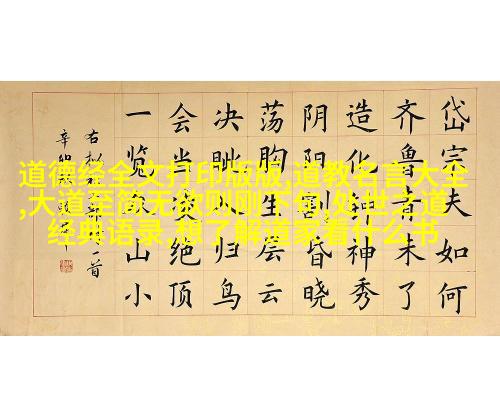 道德经全文打印版版,道教名言大全
,大道至简无欲则刚下句,处世之道
经典语录,想了解道家看什么书
岱宗夫如何
齐鲁青未了
造化钟神秀
阴阳割昏晓
荡胸生层云
决眦入归鸟
会当凌绝顶
一览众山小
右一首
辛卯